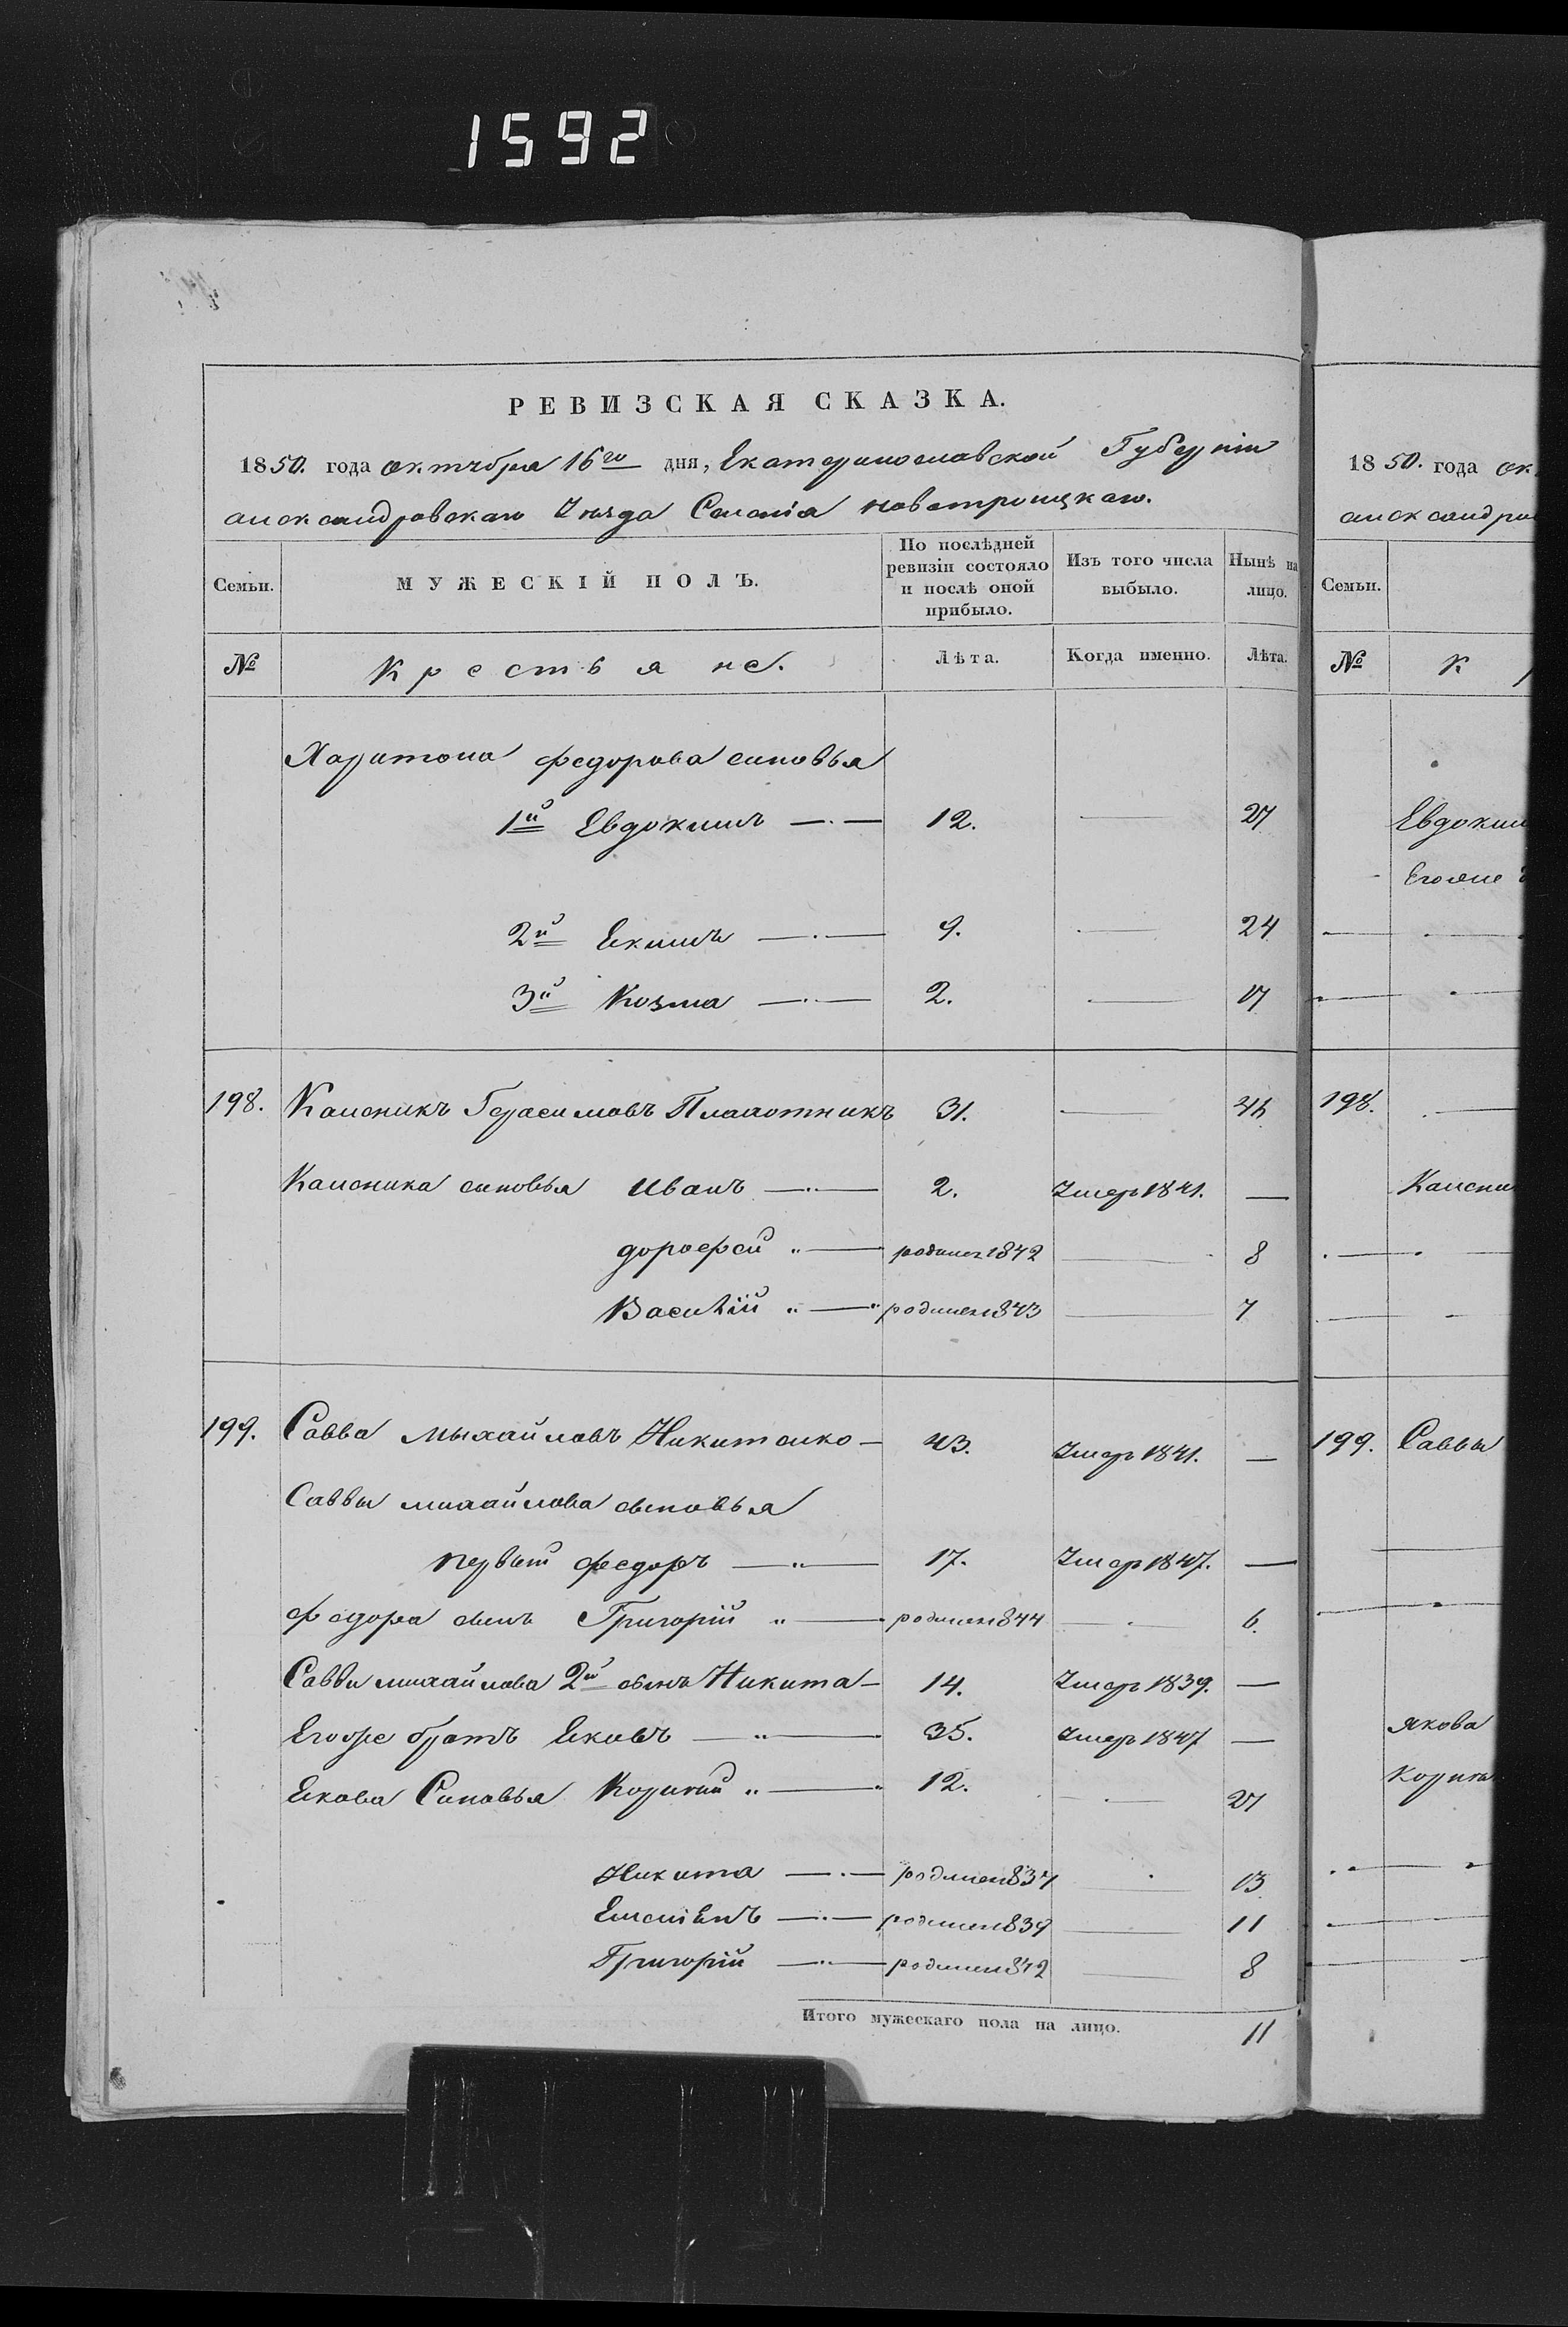 1592
РЕВИЗСКАЯ СКАЗКА.
1850. года октября 16го дня, Екатеринославской Губерніи
александровскаго Уезда Селенія новотроицкаго.
Семьи. МУЖЕСКІЙ ПОЛЪ. По послѣдней ревизіи состояло и послѣ оной прибыло. Изъ того числа выбыло. Нынѣ на лицо.
№ Крестьяне. Лѣта. Когда именно. Лѣта.
Харитона федорова синовья
1й Евдокимъ 12. — 27
2й Екимъ 9. — 24
3й Козма 2. — 17
198. Каленикъ Герасимовъ Плахотникъ 31. — 46
Каленика синовья иванъ 2. Умер 1841. —
дорофей родился 1842 — 8
Василій родился 1843 — 7
199. Савва Мыхайловъ Никитенко — 43. Умер 1841. —
Саввы михайлова сыновья
первый федоръ 17. Умер 1847. —
федора сынъ Григорій родился 1844 — 6.
Саввы михайлова 2й сынъ Никита — 14. Умер 1839. —
Егоже братъ Ековъ 35. Умер 1847 —
Екова Синовья Корнил 12. — 27
Никита родился 1837 — 13
Емельянъ родился 1839 — 11
Григорій родился 1842 — 8
Итого мужескаго пола на лицо. 11
1850. года ок
александро
Семьи.
№ К
Евдоким
Егоже
198.
Калени
199. Саввы
якова
Корнил